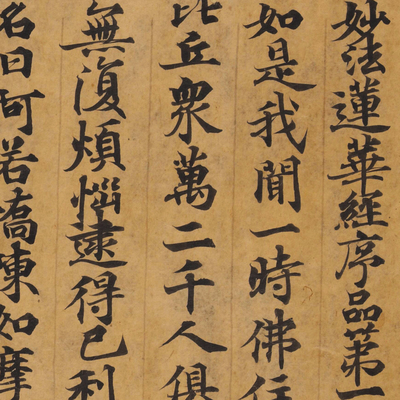 妙法蓮華經序品第一
如是我聞一時佛住
比丘衆萬二千人俱
無復煩惱逮得已利
名曰阿若憍陳如摩